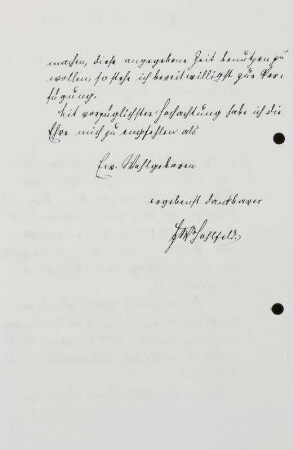 machen, diese angegebene Zeit benutzen zu
wollen, so stehe ich bereitwilligst zur Ver-
fügung.
Mit vorzüglichster Hochachtung habe ich die
Ehre mich zu empfehlen als
Ew. Wohlgeboren
ergebenst dankbarer